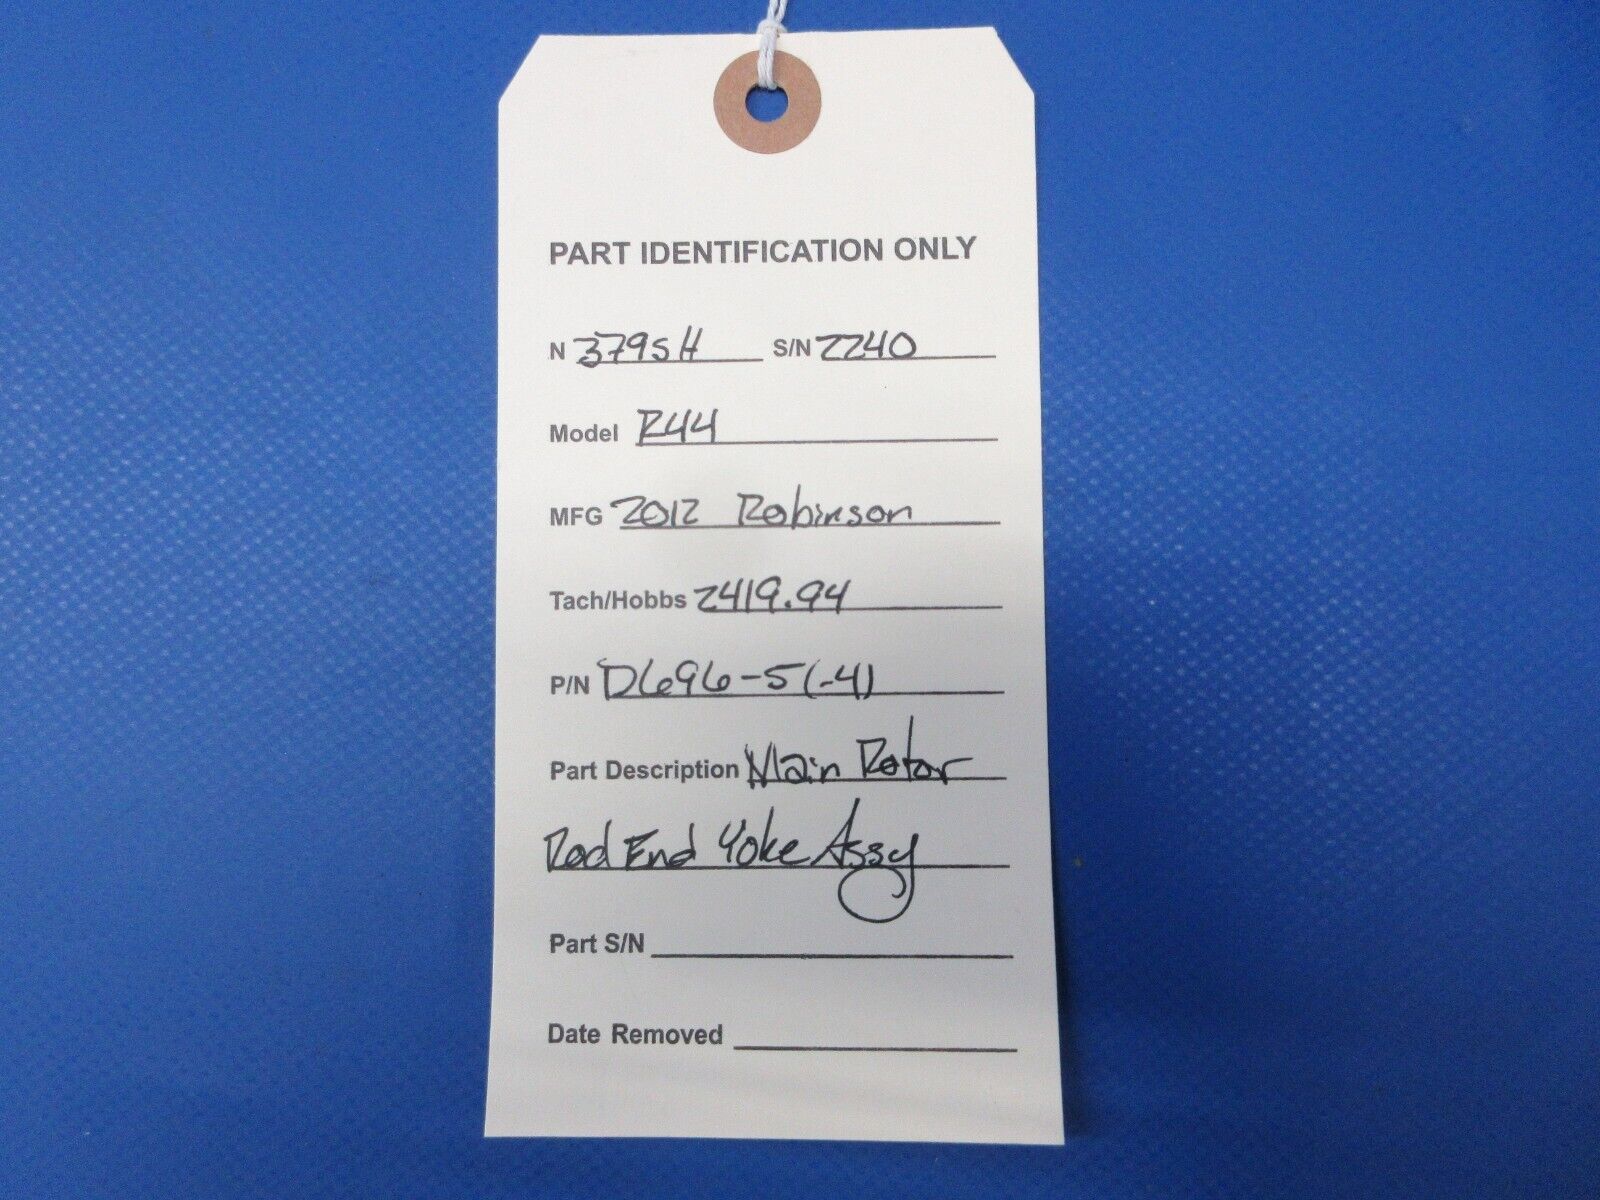 PART IDENTIFICATION ONLY
N 3795H S/N 2240
Model R44
MFG 2012 Robinson
Tach/Hobbs 2419.94
P/N D696-5(-4)
Part Description Main Rotor
Rod End Yoke Assy
Part S/N
Date Removed